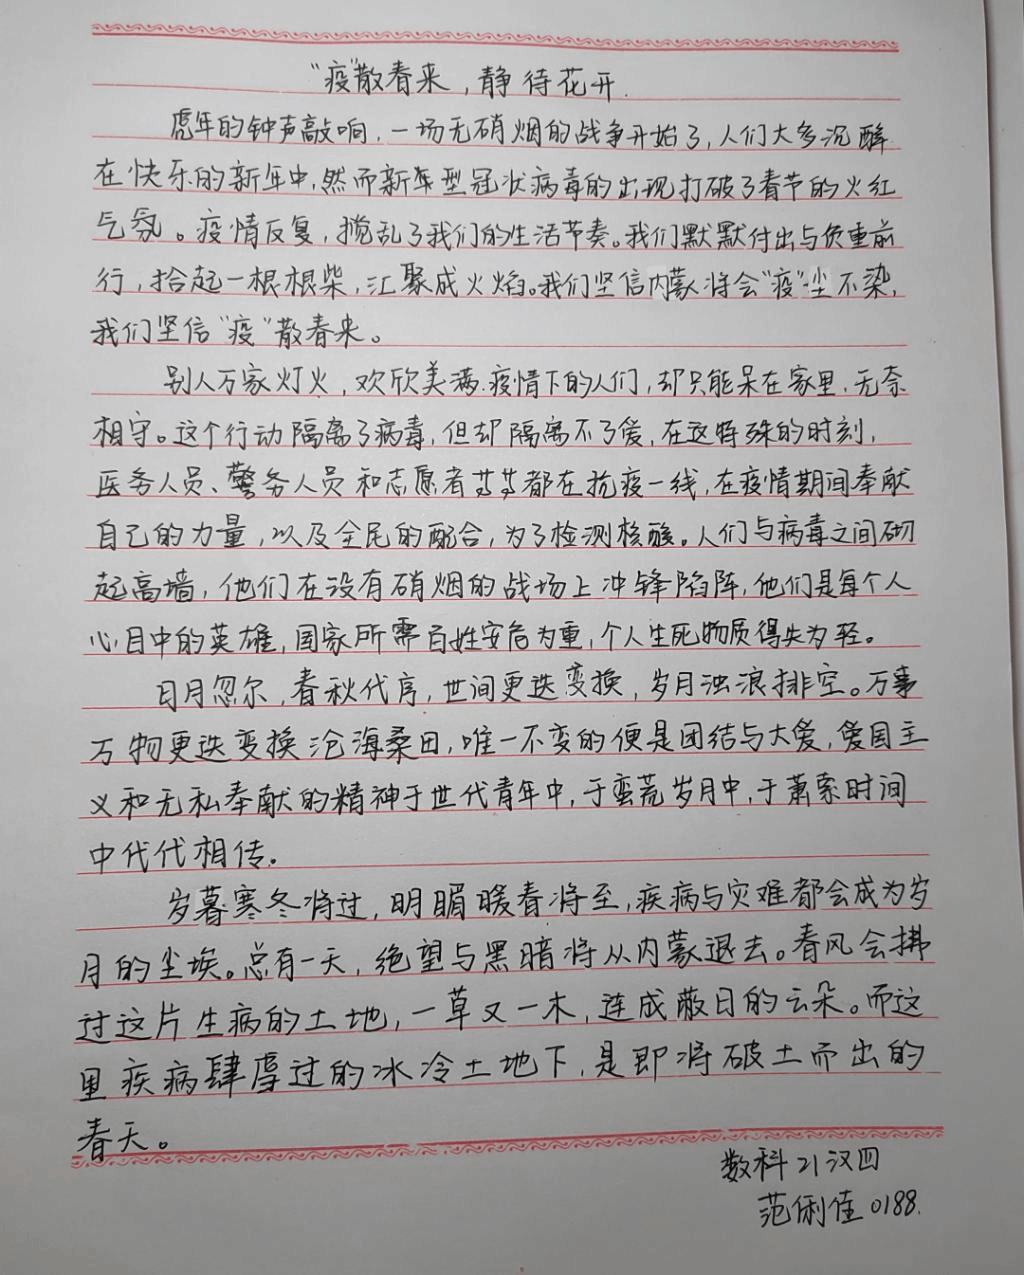 “疫”散春来，静待花开.
虎年的钟声敲响，一场无硝烟的战争开始了，人们大多沉醉
在快乐的新年中，然而新年型冠状病毒的出现打破了春节的火红
气氛。疫情反复，搅乱了我们的生活节奏。我们默默付出与负重前
行，拾起一根根柴，汇聚成火焰。我们坚信内蒙将会“疫”尘不染，
我们坚信“疫”散春来。
别人万家灯火，欢欣美满.疫情下的人们，却只能呆在家里.无奈
相守。这个行动隔离了病毒，但却隔离不了爱，在这特殊的时刻，
医务人员、警务人员和志愿者等等都在抗疫一线，在疫情期间奉献
自己的力量，以及全民的配合，为了检测核酸。人们与病毒之间砌
起高墙，他们在没有硝烟的战场上冲锋陷阵，他们是每个人
心目中的英雄，国家所需百姓安危为重，个人生死物质得失为轻。
日月忽尔，春秋代序，世间更迭变换，岁月浊浪排空。万事
万物更迭变换沧海桑田，唯一不变的便是团结与大爱，爱国主
义和无私奉献的精神于世代青年中，于蛮荒岁月中，于萧索时间
中代代相传。
岁暮寒冬将过，明媚暖春将至，疾病与灾难都会成为岁
月的尘埃。总有一天，绝望与黑暗将从内蒙退去。春风会拂
过这片生病的土地，一草又一木，连成蔽日的云朵。而这
里疾病肆虐过的冰冷土地下，是即将破土而出的
春天。
数科21汉四
范俐佳0188.